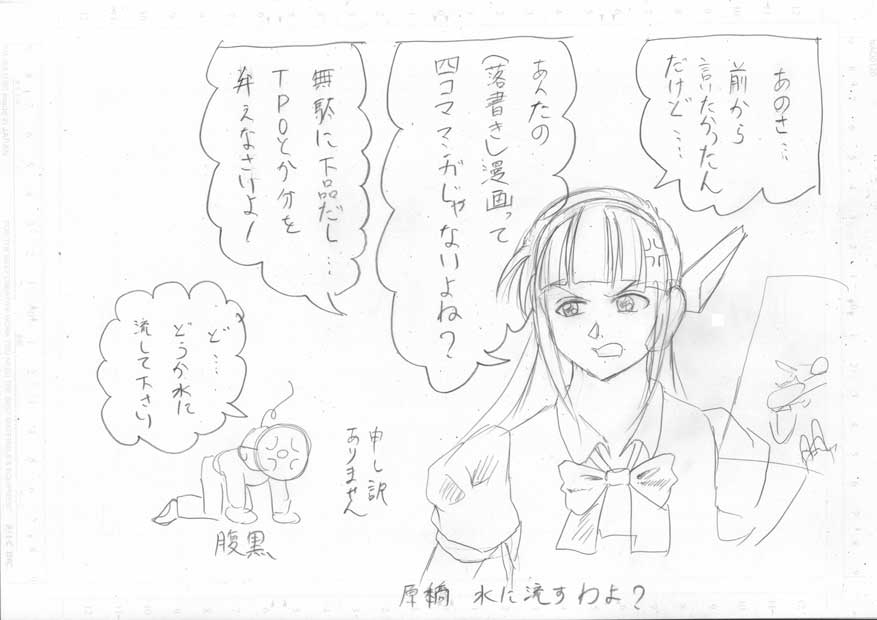 あのさ…
前から
言いたかったん
だけど…
あんたの
(落書きし漫画って
四コママンガじゃないよね?
無駄に下品だし…
TPOとか分を
弁えなさいよ!
ど…
どうか水に
流して下さい
申し訳
ありません
腹黒
原稿 水に流すわよ?